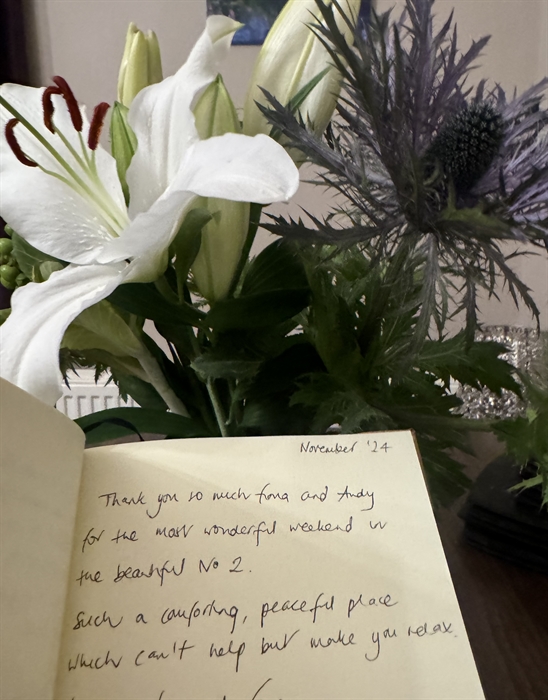 November '24
Thank you so much fiona and Andy
for the most wonderful weekend in
the beautiful No 2.
Such a comforting, peaceful place
which can't help but make you relax.